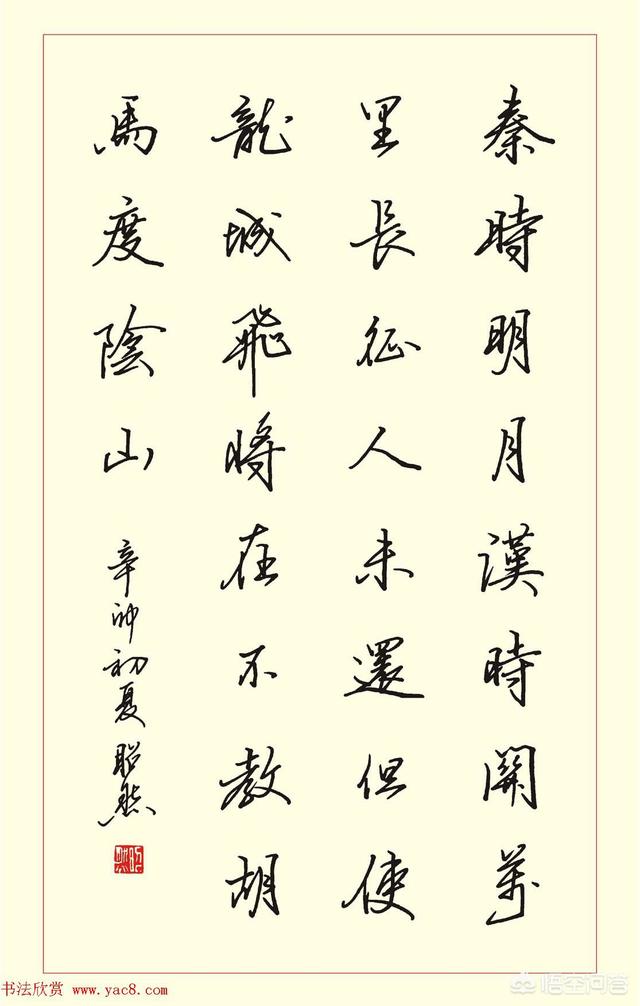 秦時明月漢時關萬
里長征人未還但使
龍城飛將在不教胡
馬度陰山
辛卯初夏昭然
书法欣赏 www.yac8.com
悟空问答